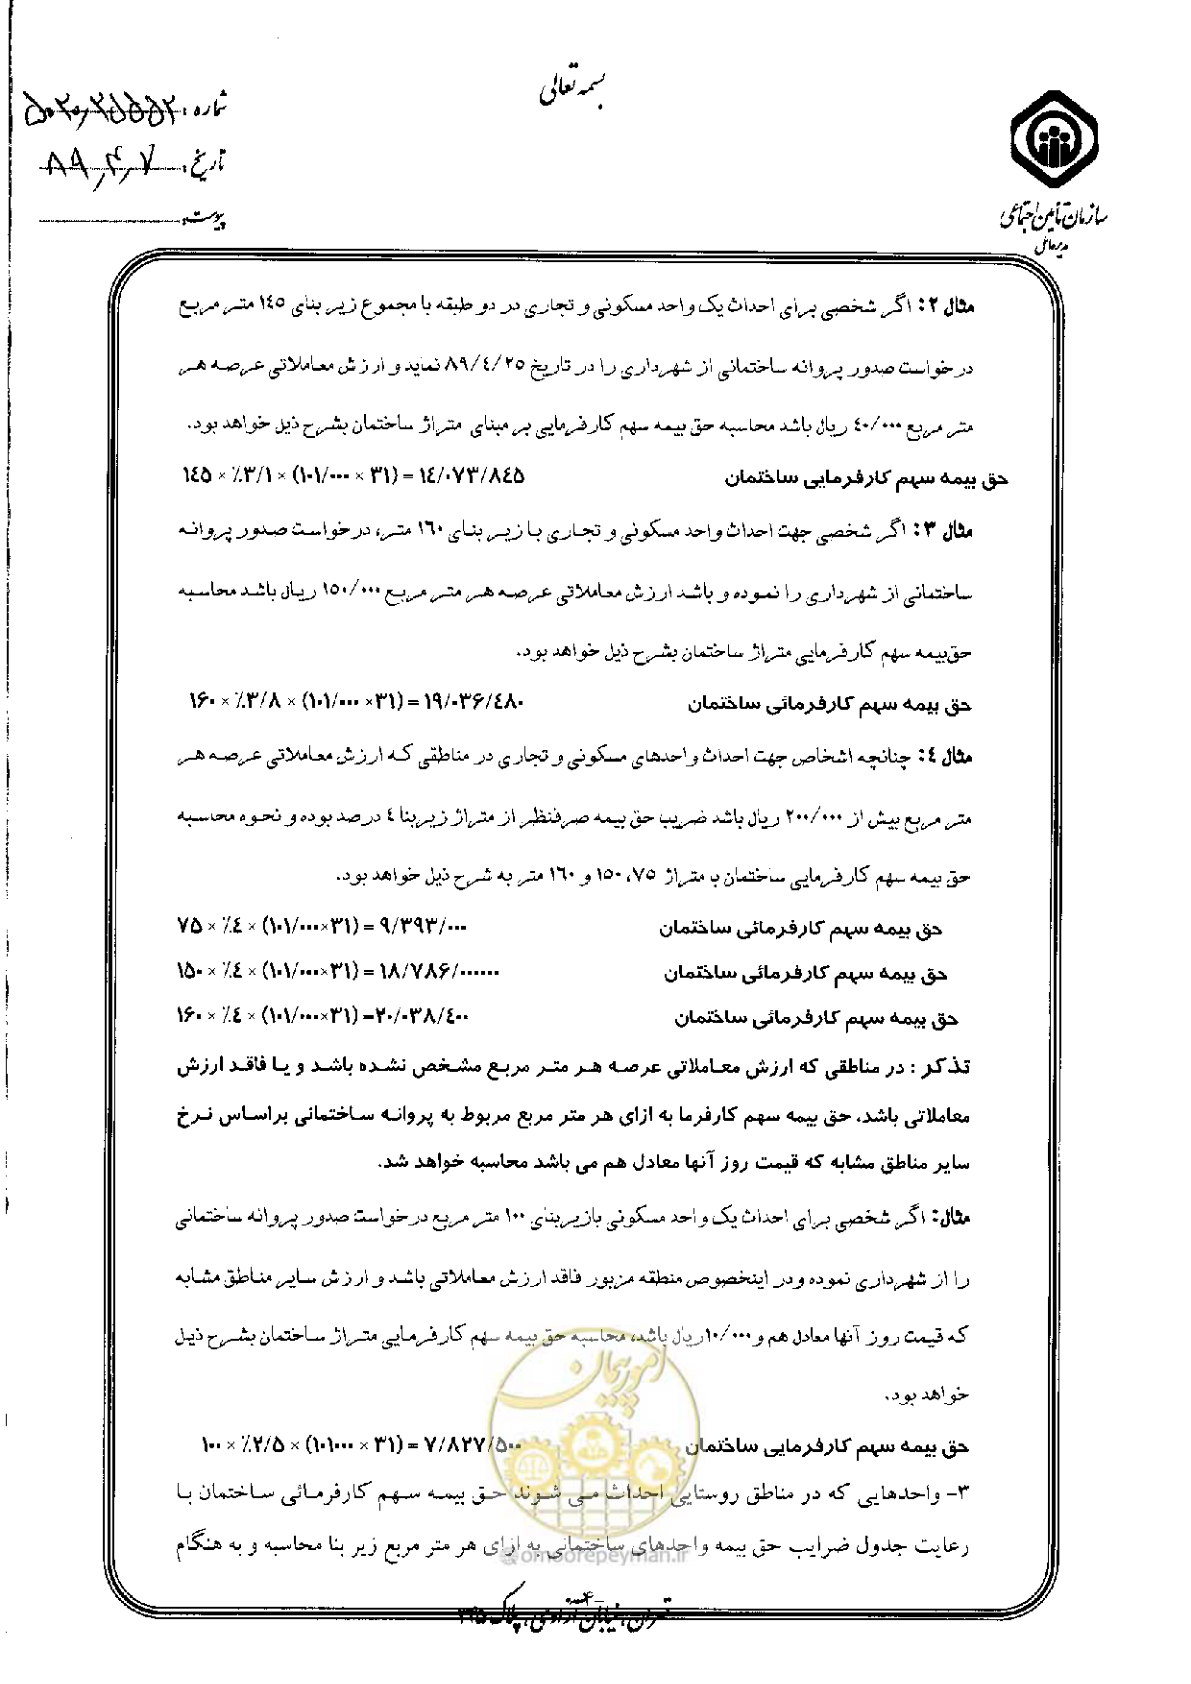 بسمه تعالی
شماره: ۵۰۲۰/۳۵۵۵۲
تاریخ: ۸۹/۴/۷
پیوست:
سازمان تأمین اجتماعی
مدیرعامل
مثال ۲: اگر شخصی برای احداث یک واحد مسکونی و تجاری در دو طبقه با مجموع زیر بنای ۱۴۵ متر مربع
درخواست صدور پروانه ساختمانی از شهرداری را در تاریخ ۸۹/٤/۲۵ نماید و ارزش معاملاتی عرصه هر
متر مربع ٤۰/۰۰۰ ریال باشد محاسبه حق بیمه سهم کارفرمایی بر مبنای متراژ ساختمان بشرح ذیل خواهد بود.
حق بیمه سهم کارفرمایی ساختمان ۱٤۵ × ٪۳/۱ × (۱۰۱/۰۰۰ × ۳۱) = ۱٤/۰۷۳/۸٤۵
مثال ۳: اگر شخصی جهت احداث واحد مسکونی و تجاری با زیر بنای ۱٦۰ متر، درخواست صدور پروانه
ساختمانی از شهرداری را نموده و باشد ارزش معاملاتی عرصه هر متر مربع ۱۵۰/۰۰۰ ریال باشد محاسبه
حق‌بیمه سهم کارفرمایی متراژ ساختمان بشرح ذیل خواهد بود.
حق بیمه سهم کارفرمائی ساختمان ۱۶۰ × ٪۳/۸ × (۱۰۱/۰۰۰ ×۳۱) = ۱۹/۰۳۶/٤۸۰
مثال ٤: چنانچه اشخاص جهت احداث واحدهای مسکونی و تجاری در مناطقی که ارزش معاملاتی عرصه هر
متر مربع بیش از ۲۰۰/۰۰۰ ریال باشد ضریب حق بیمه صرفنظر از متراژ زیربنا ٤ درصد بوده و نحوه محاسبه
حق بیمه سهم کارفرمایی ساختمان با متراژ ۷۵، ۱۵۰ و ۱٦۰ متر به شرح ذیل خواهد بود.
حق بیمه سهم کارفرمائی ساختمان ۷۵ × ٪٤ × (۱۰۱/۰۰۰×۳۱) = ۹/۳۹۳/۰۰۰
حق بیمه سهم کارفرمائی ساختمان ۱۵۰ × ٪٤ × (۱۰۱/۰۰۰×۳۱) = ۱۸/۷۸۶/۰۰۰۰۰۰
حق بیمه سهم کارفرمائی ساختمان ۱۶۰ × ٪٤ × (۱۰۱/۰۰۰×۳۱) =۲۰/۰۳۸/٤۰۰
تذکر : در مناطقی که ارزش معاملاتی عرصه هر متر مربع مشخص نشده باشد و یا فاقد ارزش
معاملاتی باشد، حق بیمه سهم کارفرما به ازای هر متر مربع مربوط به پروانه ساختمانی براساس نرخ
سایر مناطق مشابه که قیمت روز آنها معادل هم می باشد محاسبه خواهد شد.
مثال: اگر شخصی برای احداث یک واحد مسکونی بازیربنای ۱۰۰ متر مربع درخواست صدور پروانه ساختمانی
را از شهرداری نموده ودر اینخصوص منطقه مزبور فاقد ارزش معاملاتی باشد و ارزش سایر مناطق مشابه
که قیمت روز آنها معادل هم و ۱۰/۰۰۰ریال باشد، محاسبه حق بیمه سهم کارفرمایی متراژ ساختمان بشرح ذیل
خواهد بود.
حق بیمه سهم کارفرمایی ساختمان ۱۰۰ × ٪۲/۵ × (۱۰۱۰۰۰ × ۳۱) = ۷/۸۲۷/۵۰۰
۳- واحدهایی که در مناطق روستایی احداث می شوند حق بیمه سهم کارفرمائی ساختمان با
رعایت جدول ضرایب حق بیمه واحدهای ساختمانی به ازای هر متر مربع زیر بنا محاسبه و به هنگام
امور پیمان
@omoorepeyman.ir
تهران، خیابان آزادی، پلاک ۳۴۵